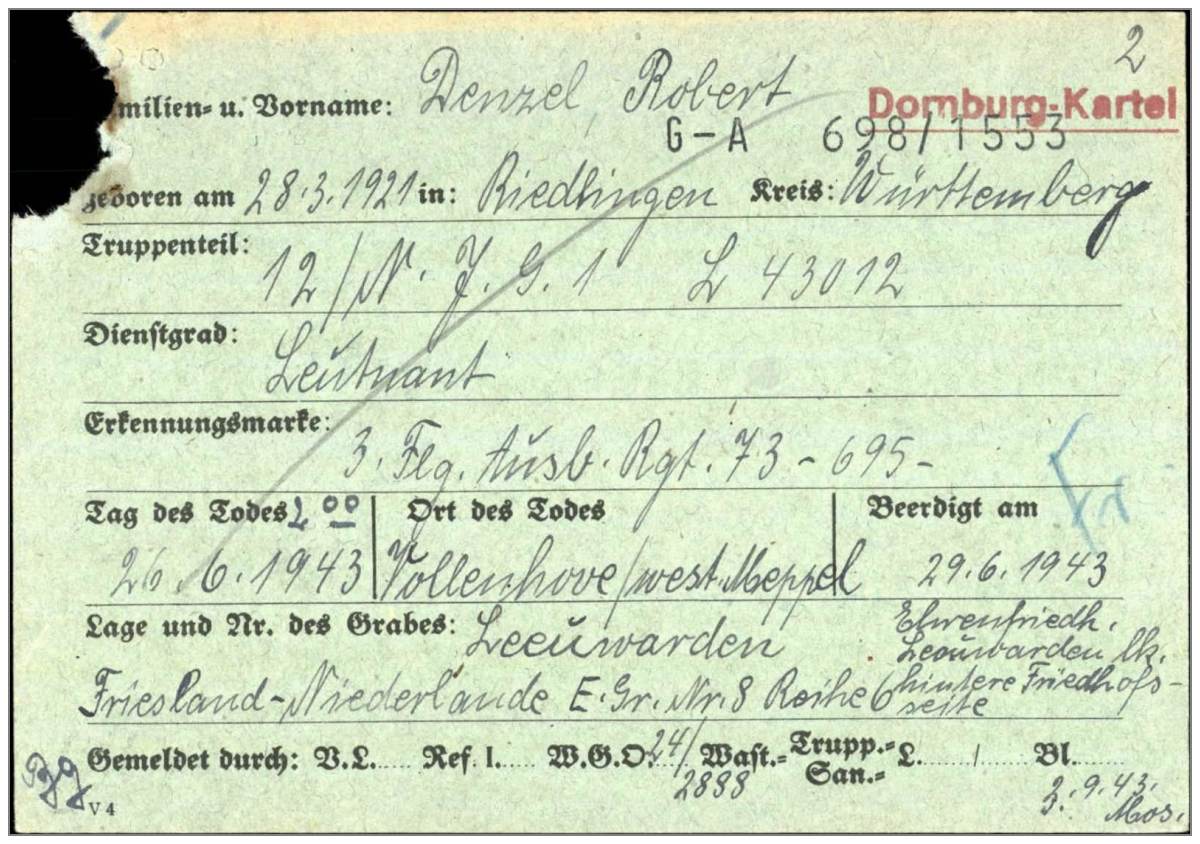 2
amilien= u. Vorname: Denzel, Robert
Dornburg-Kartei
G-A 698/1553
geboren am 28.3.1921 in: Riedlingen Kreis: Württemberg
Truppenteil: 12/N. J. G. 1 L 43012
Dienstgrad: Leutnant
Erkennungsmarke: 3. Flg. Ausb. Rgt. 73 - 695 -
Tag des Todes 2 00 Ort des Todes Beerdigt am
26.6.1943 Vollenhove/west. Meppel 29.6.1943
Lage und Nr. des Grabes: Leeuwarden Ehrenfriedh.
Leeuwarden lk.
Friesland-Niederlande E. Gr. Nr. 8 Reihe 6 hintere Friedhofs-
seite
Gemeldet durch: V.L..... Ref. I..... W.G.O. 24/2888 Wast.= Trupp.= San.= L......./...... Bl.......
2.9.43.
Mos.
V 4